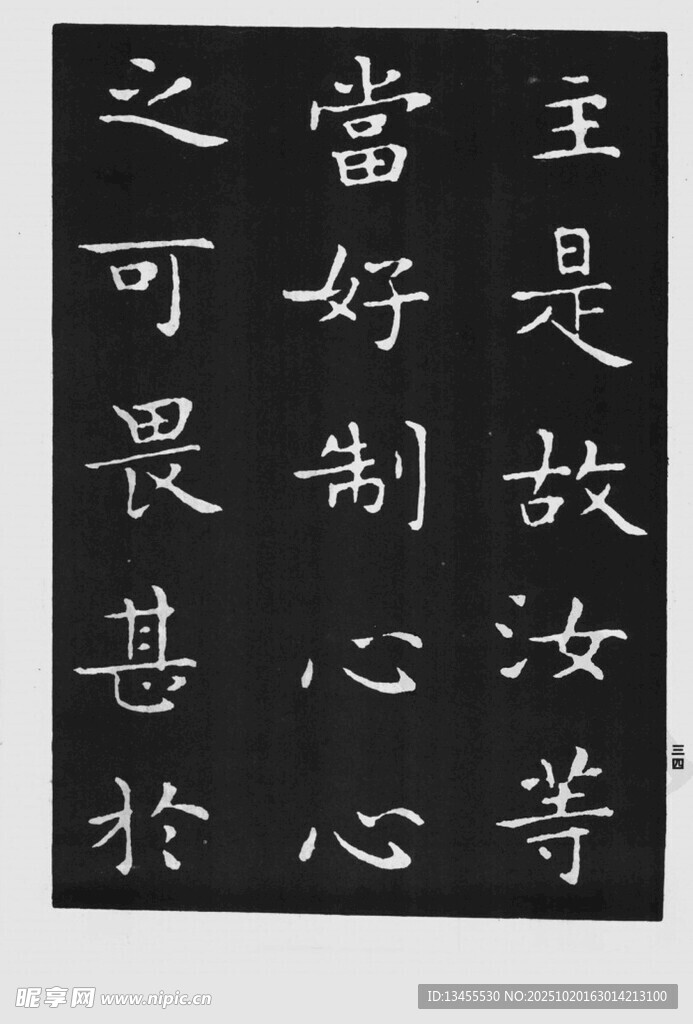 主是故汝等
當好制心心
之可畏甚於
三四
昵享网 www.nipic.cn
ID:13455530 NO:20251020163014213100